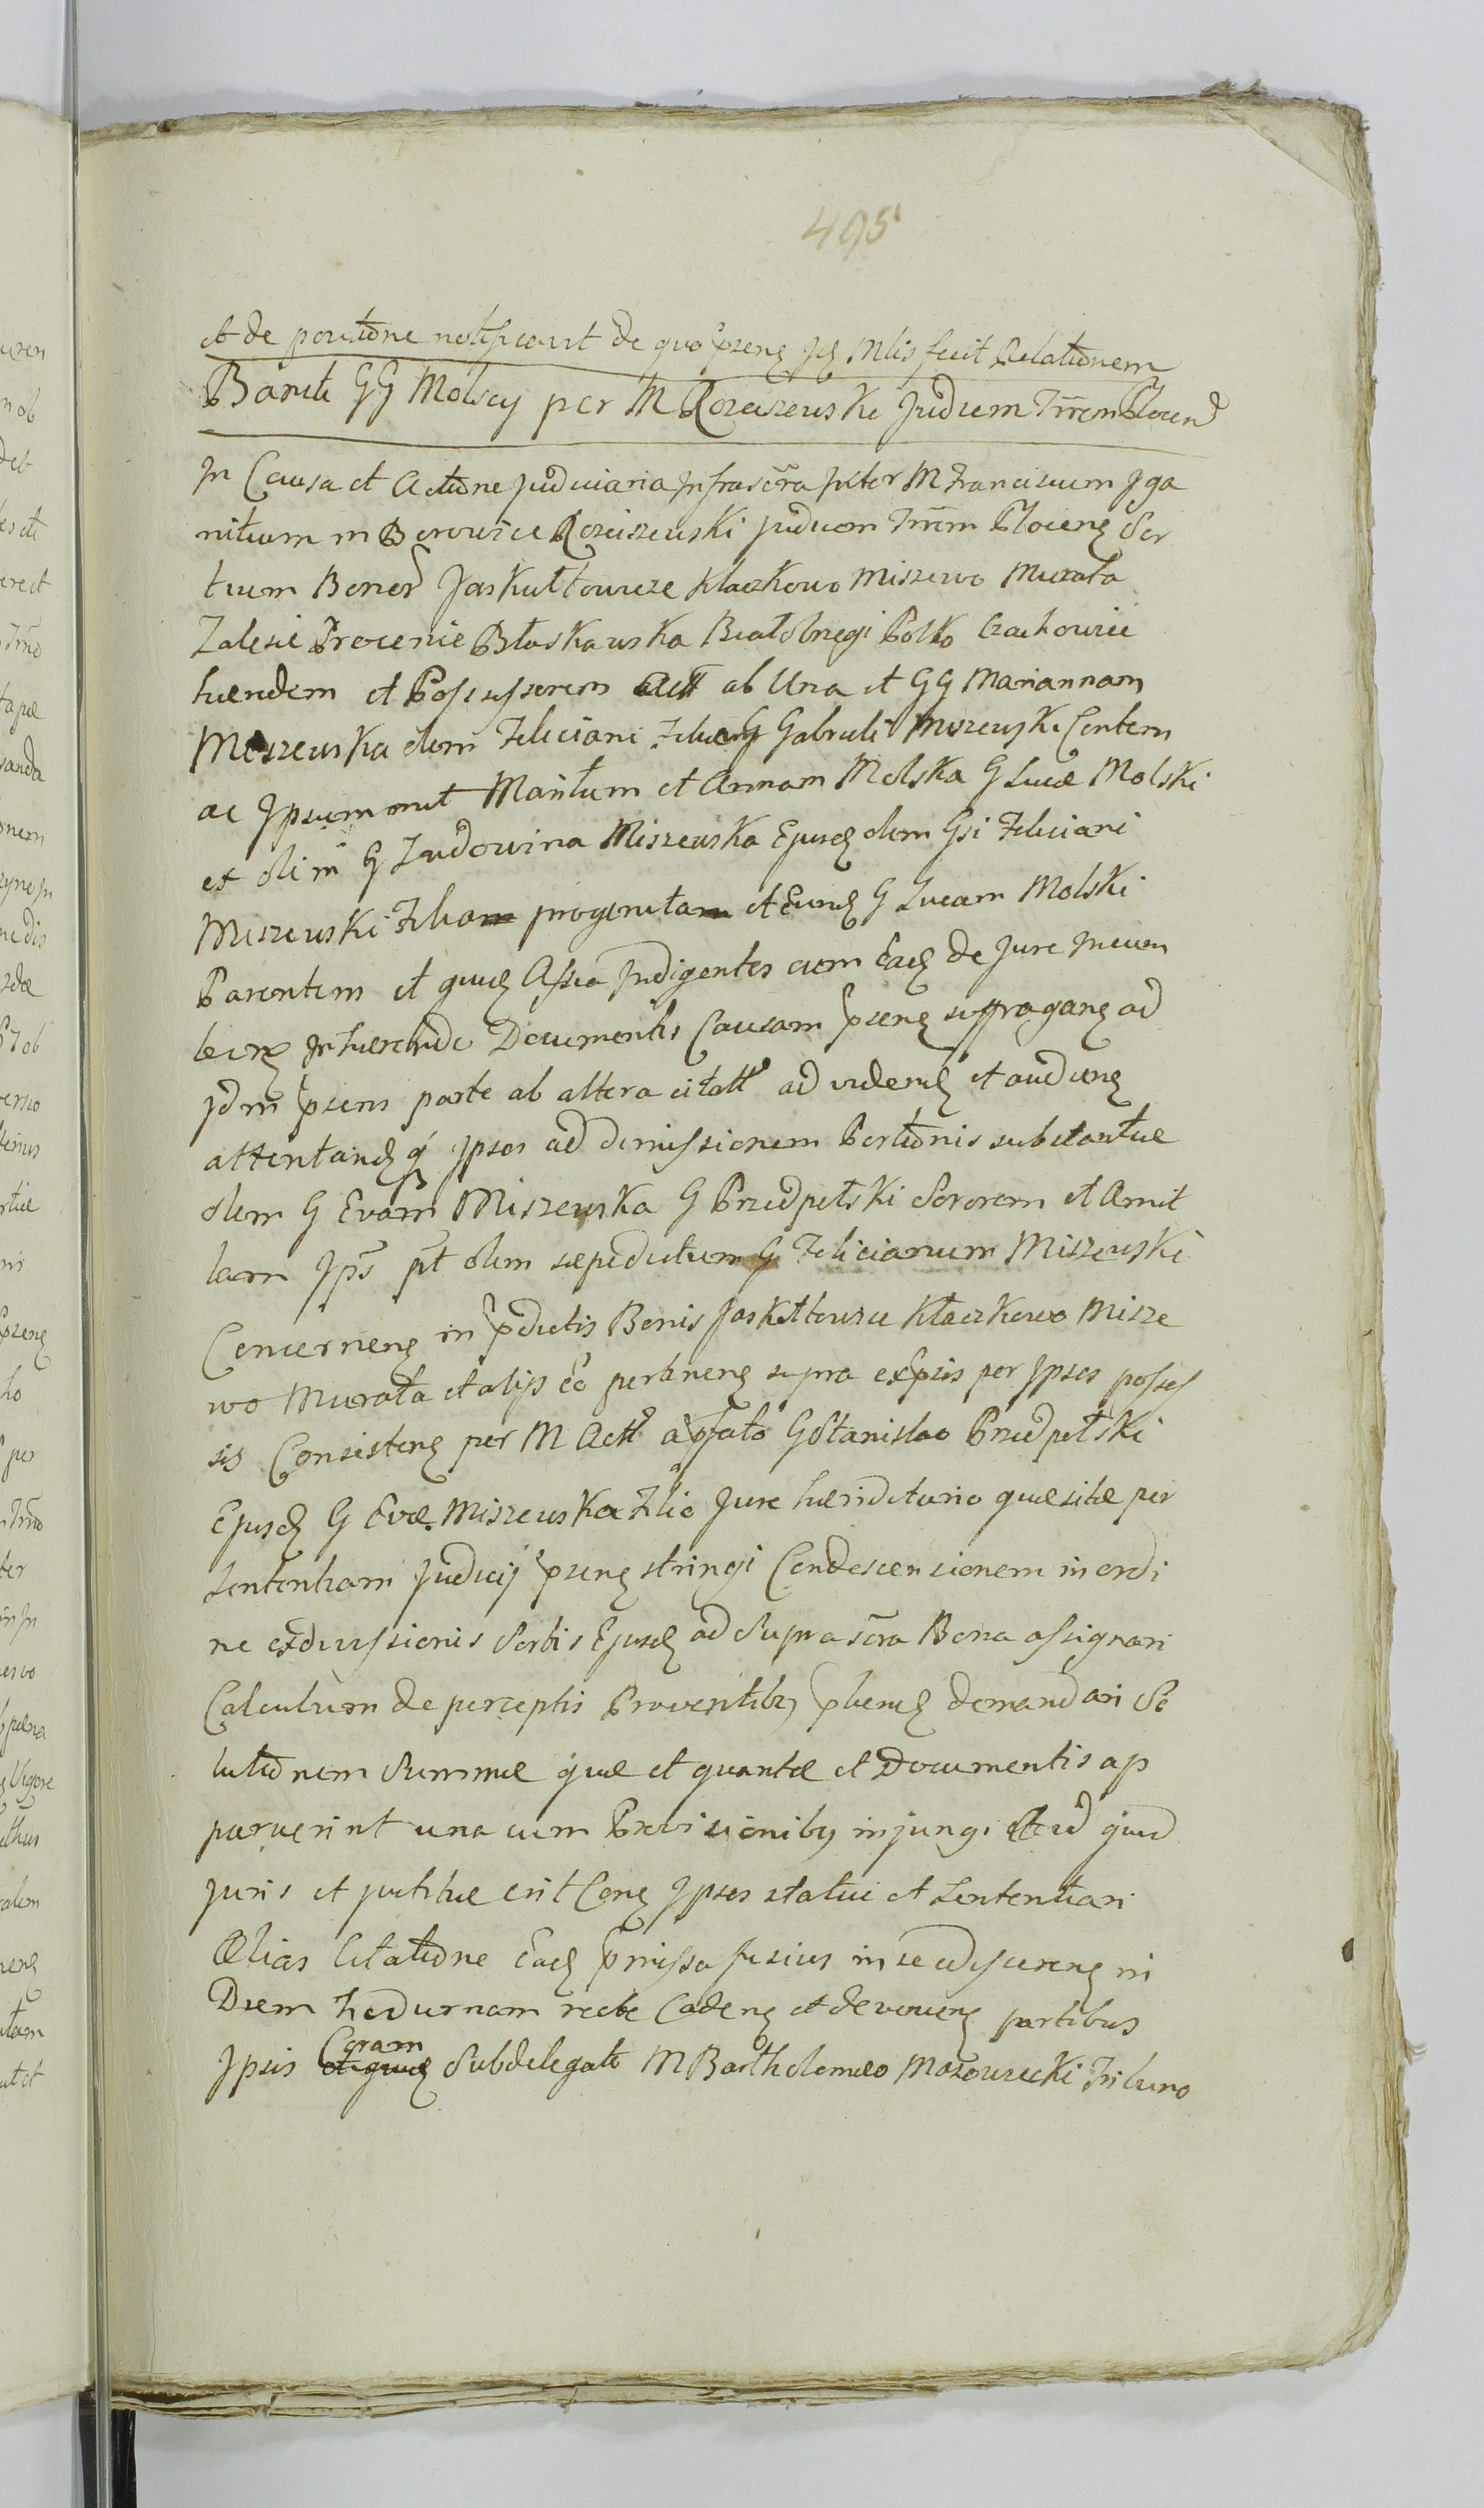 495
et de positione notificavit de quo prnś Jcś Mlis fecit Relationem
Baniti GG Molscy per M Rościszewski Judicem Trrem Plocen
In Causa et Actione Judiciaria Infrascra Inter M Franciscum Iga
nitium in Borowice Rosciszewski Judicem Trrem Plocenś Sor
tium Bonor Jaskułtowicze Kłaczkowo Miszewo Murata
Zalesie Procenie Błaskawska Białobrzegi Polko Czachowice
hæredem et Possessorem Act ab Una et GG Mariannam
Miszewska olim Feliciani Filiam G Gabrieli Miszewski Contem
ac Ipsummet Maritum et Annam Molska G Lucæ Molski
ex olim G Ludowina Miszewska Ejusdś olim Gsi Feliciani
Miszewski Filiam progenitam et Eundś G Lucam Molski
Parentem et quosdś Assia Indigentes cum Eadś de Jure Incum
benś Inhærendo Documentis Causam prnś suffraganś ad
Idm prnś parte ab altera citatt ad videndś et audienś
attentandś q Ipsos ad dimissionem Portionis substantiæ
olim G Evam Miszewska G Przedpełski Sororem et Amit
tam Ips pt olim sæpedictum G Felicianum Miszewski
Concernenś in pdictis Bonis Jaskułtowice Kłaczkowo Misze
wo Murata et alys eo pertinenś supra exprsis per Ipsos posses
sis Consistenś per M Act a pfato G Stanislao Przedpełski
Ejusdś G Evæ Miszewska Filio Jure hæreditario quæsitæ per
Sententiam Judicij prnś stringi Condescensionem in ordi
ne exdivisionis Sortis Ejusdś ad Suprascra Bona assignari
Calculum de perceptis Proventibs phendś demandari So
lutionem Summæ quæ et quantæ et Documentis ap
paruerint una cum Provisionibs injungi et id quid
juris et justitiæ erit Conś Ipsos statui et Sententiari
Alias Citatione Eadś pmissa fusius in se edisserenś in
Diem hodiernam recte Cadenś et devovenś partibus
Ipsis Coram Subdelegato M Bartholomeo Mazowiecki Tribuno